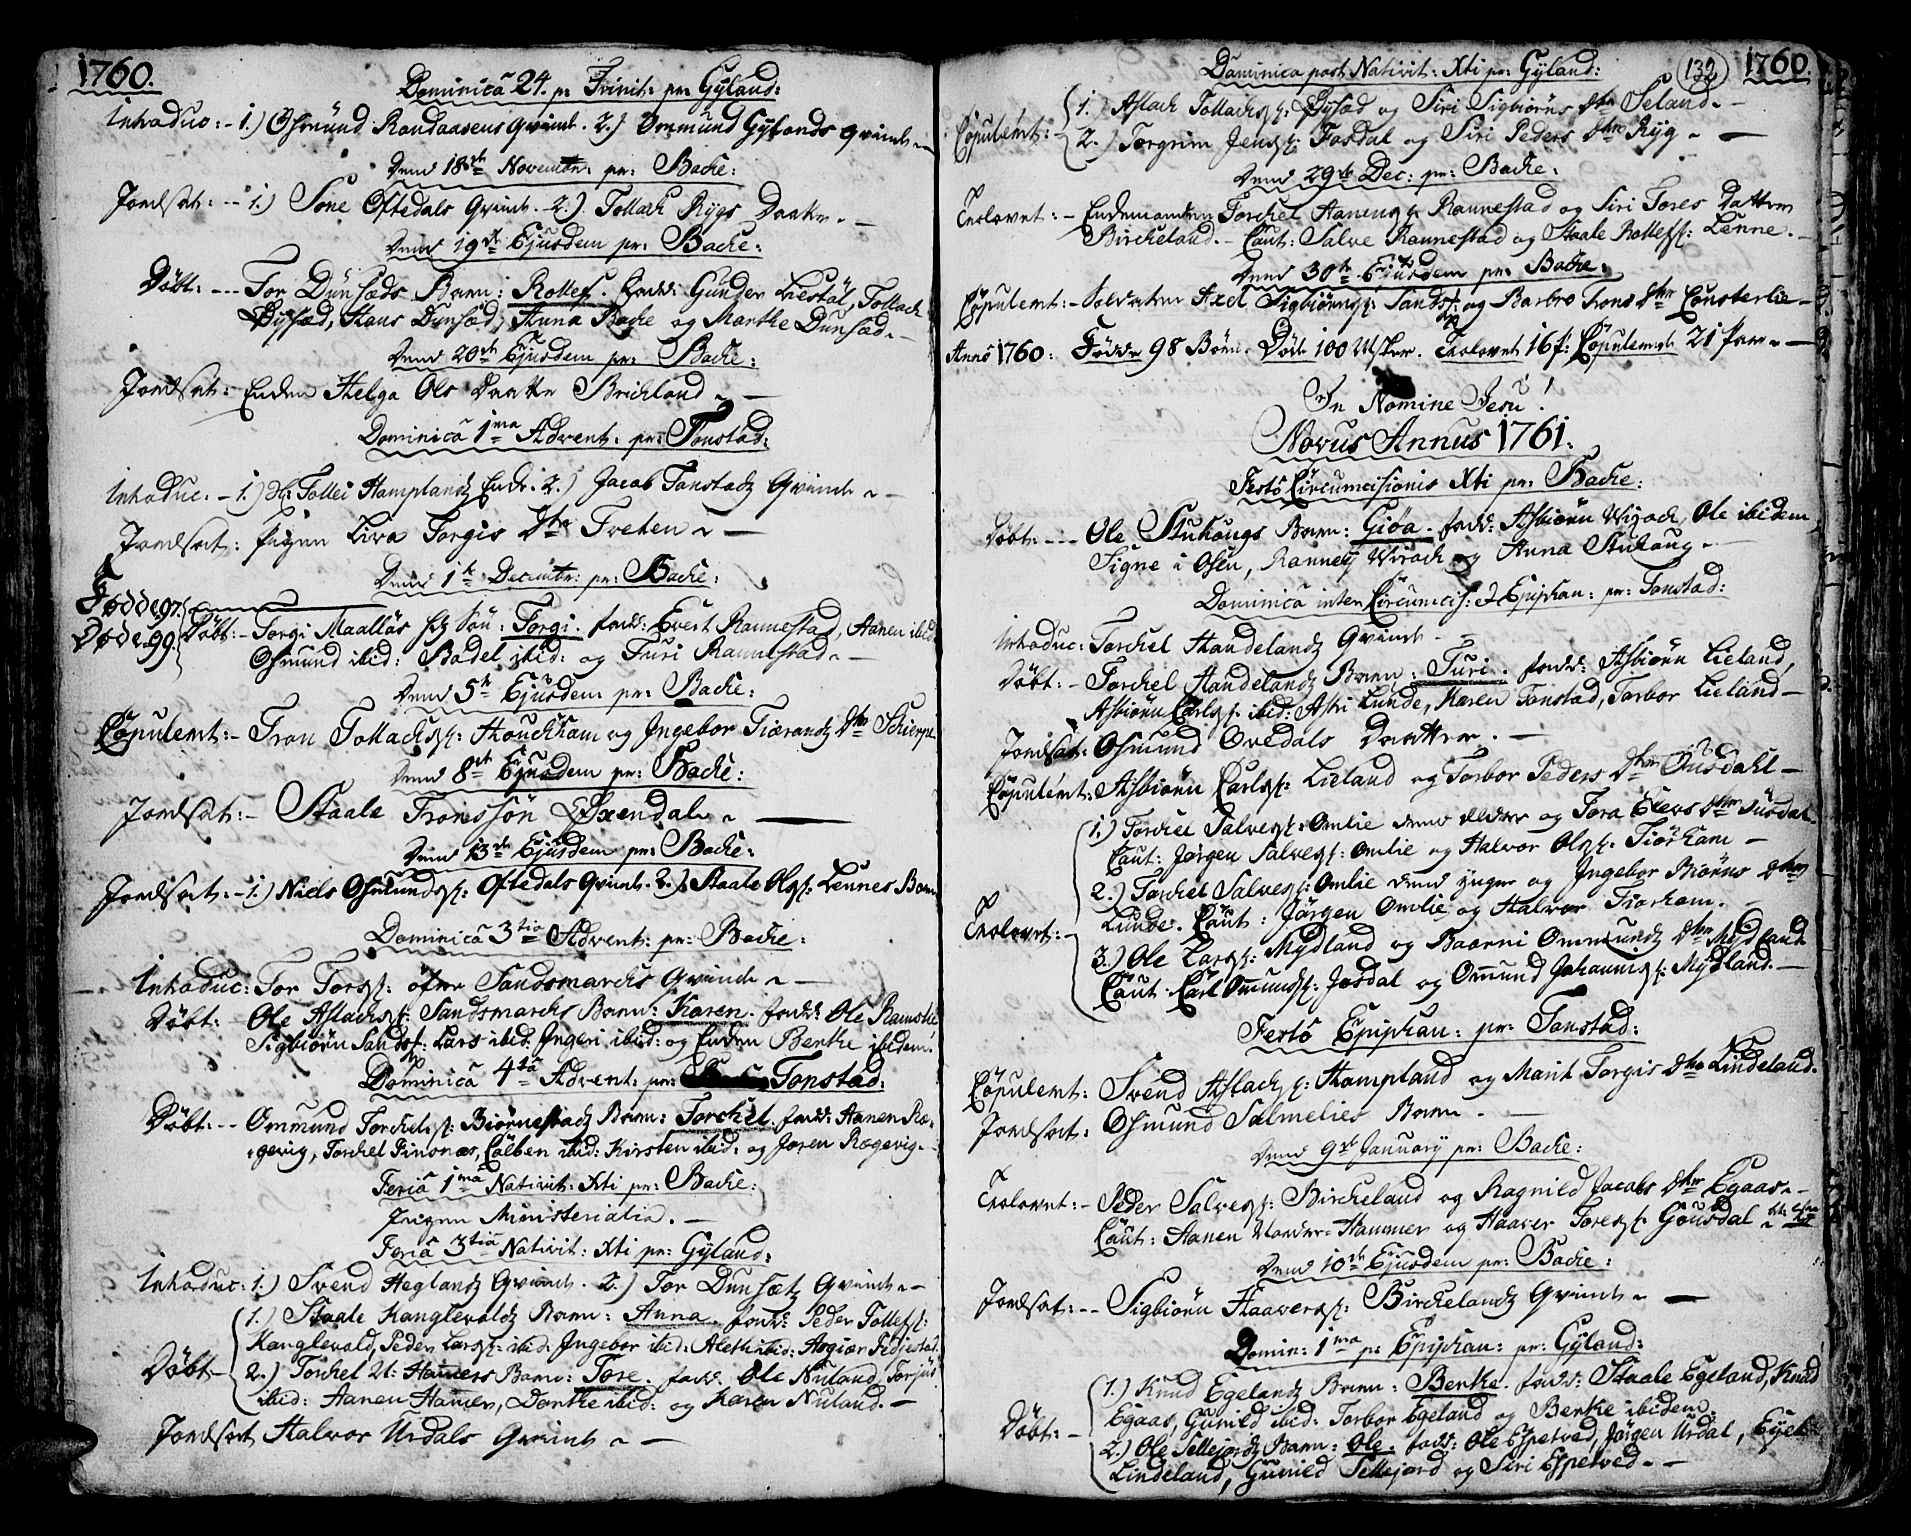 1760.
Dominica 24. p: Trinit: pr: Gyland:
Introduc: - 1.) Osmund Randaasens Qvinde. 2.) Ommund Gylands Qvinde
Dend 18de Novembr: pr: Backe:
Jordsat: - 1.) Tone Oftedals Qvinde. 2.) Tollack Rygs Daatter.
Dend 19de Ejusdem pr: Backe:
Døbt: --- Tor Dunsæds Barn: Rollef. Fadd: Gunder Liestøl, Tollack
Dyssæd, Hans Dunsæd, Anna Backe og Marthe Dunsæd.
Dend 20de Ejusdem pr: Backe:
Jordsat: Enken Helga Ols Daatter Birchland
Dominica 1ma Advent: pr: Tonstad:
Introduc: - 1.) Tollei Hamplandz Enke. 2.) Jacob Tonstadz Qvinde
Jordsat: Pigen Liva Torgis Dtr Treten
Dend 1te Decembr: pr: Backe:
Fødde 97.
Døde 99.
Døbt: - Torgi Maalløs Søn: Torgi. Fadd: Evert Rannestad, Aanen ibid:
Osmund ibid: Bodel ibid: og Turi Rannestad
Dend 5te Ejusdem pr: Backe:
Copuleret: - Tron Tollachs: Houckham og Ingebor Tiærandz Dtr Schierpe
Dend 8de Ejusdem pr: Backe:
Jordsat: - Staale Tronssøn Øxendal
Dend 13de Ejusdem pr: Backe:
Jordsat: - 1.) Niels Osmunds: Oftedals Qvinde. 2.) Staale Ols: Lennes Barn
Dominica 3tia Advent: pr: Backe:
Introduc: Tor Tors: øfre Sandsmarcks Qvinde
Døbt: Ole Aslachs: Sandsmarcks Barn: Karen. Fadd: Ole
Sigbiørn Sands: Lars ibid: Ingeri ibid: og Enken Berthe ibidem.
Dominica 4ta Advent: pr: Tonstad:
Døbt: -- Ommund Torckels: Biørnestadz Barn: Torckel. Fadd: Aanen Ræ-
gevig, Torckel Finsnæs, Colben ibid: Kirsten ibid: og Joren Rægevig.
Feria 1ma Nativit: Xti pr: Backe:
Ingen Ministerialia.
Feria 3tia Nativit: Xti pr: Gyland:
Introduc: 1.) Svend Heglandz Qvinde. 2.) Tor Dunsætz Qvinde
Døbt - 1.) Staale Kanglevaldz Barn: Anna. Fadd: Peder Tollefs:
Kanglevald, Peder Lars: ibid: Ingebor ibid: Aleth ibid: Asgier Fidjestøl.
2.) Torckel N: Hamers Barn: Tore. Fadd: Ole Nuland, Torjus
ibid: Aanen Hamer, Dorthe ibid: og Karen Nuland.
Jordsat Halvor Urdals Qvinde
132
1760.
Dominica post Nativit: Xti pr: Gyland:
Copuleret: 1.) Aslack Tollachs: Dysæd og Siri Sigbiørns Dtr Seland.
2.) Torgrim Jens: Fosdal og Siri Peders Dtr Ryg
Dend 29de Dec: pr: Backe:
Trolovet: - Enkemanden Torckel Aanens: Rannestad og Siri Tores Datter
Birckeland. - Caut: Salve Rannestad og Staale Rollefs: Lenne.
Dend 30te Ejusdem pr: Backe.
Copuleret: - Soldaten Axel Sigbiørns: Sands: og Barbro Trons Dtr Consterlie
Anno 1760: Fødde 98 Børn. Døde 100 Msker. Trolovet 16 p: Copuleret 21 Par
In Nomine Jesu!
Novus Annus 1761.
Festo Circumcisionis Xti pr: Backe:
Døbt: --- Ole Stuhougs Barn: Giøa. Fadd: Asbiørn Virack, Ole ibidem
Signe i Osen, Ranney Virack og Anna Stuhoug.
Dominica inter Circumcis: & Epiphan: pr: Tonstad:
Introduc: Torckel Handelandz Qvinde
Døbt: - Torckel Handelandz Barn: Turi. Fadd: Asbiørn Lieland,
Asbiørn Carls: ibid: Astri Lunde, Karen Tonstad, Torbor Lieland
Jordsat: Osmund Ovedals Daatter.
Copuleret: Asbiørn Carls: Lieland og Torbor Peders Dtr Ousdahl
Trolovet: - 1.) Torckel Salves: Omlie dend ældre og Tora Elevs Dtr Susdal
Caut: Jørgen Salves: Omlie og Halvor Ols: Tiørham
2.) Torckel Salves: Omlie dend yngre og Ingebor Biørns Dtr
Lunde. Caut: Jørgen Omlie og Halvor Tiørham.
3.) Ole Lars: Mydland og Baarni Ommundz Dtr Mydland
Caut: Carl Ommunds: Josdal og Ommund Johannis: Mydland.
Festo Epiphan: pr: Tonstad:
Copuleret: Svend Aslachs: Hampland og Marit Torgis Dtr Lindeland.
Jordsat: Osmund Salmelies Barn.
Dend 9de January pr: Backe:
Trolovet: - Peder Salves: Birckeland og Ragnild Jacobs Dtr Egaas
Caut: Aanen Hammer og Haaver Tores: Gousdal
Dend 10de Ejusdem pr: Backe:
Jordsat: -- Sigbiørn Haavers: Birckelandz Qvinde
Domin: 1ma p: Epiphan: pr: Gyland:
Døbt: - 1.) Knud Egelandz Barn: Berthe. Fadd: Staale Egeland, Knud
Egaas, Gunild ibid: Torbor Egeland og Berthe ibidem.
2.) Ole Sellejordz Barn: Ole. Fadd: Ole Espetved, Jørgen Urdal, Eyel
Lindeland, Gunild Sellejord og Siri Espetved